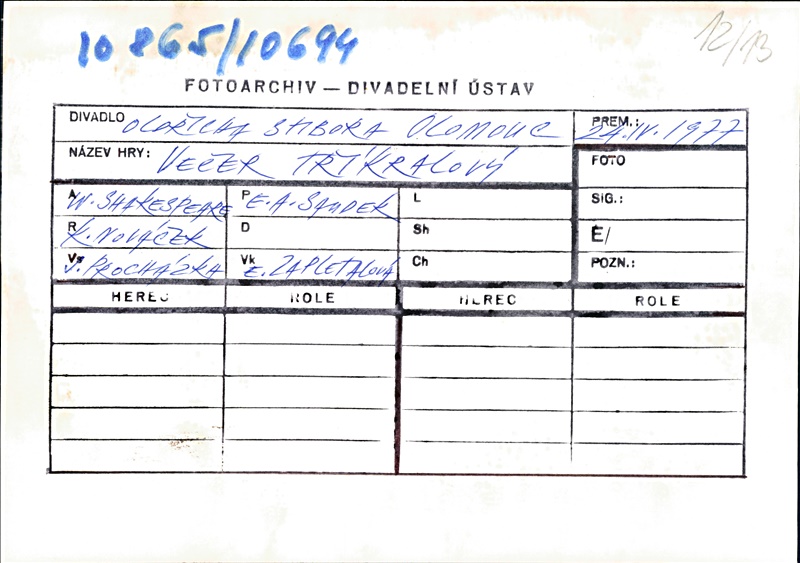 10865/10694
12/13
FOTOARCHIV — DIVADELNÍ ÚSTAV
DIVADLO OLDŘICHA STIBORA OLOMOUC PREM.: 24.IV.1977
NÁZEV HRY: VEČER TŘÍKRÁLOVÝ FOTO
A W. SHAKESPEARE P E. A. SAUDEK L SIG.:
R K. NOVÁČEK D Sh É/
Vs J. PROCHÁZKA Vk E. ZAPLETALOVÁ Ch POZN.:
HEREC ROLE HEREC ROLE